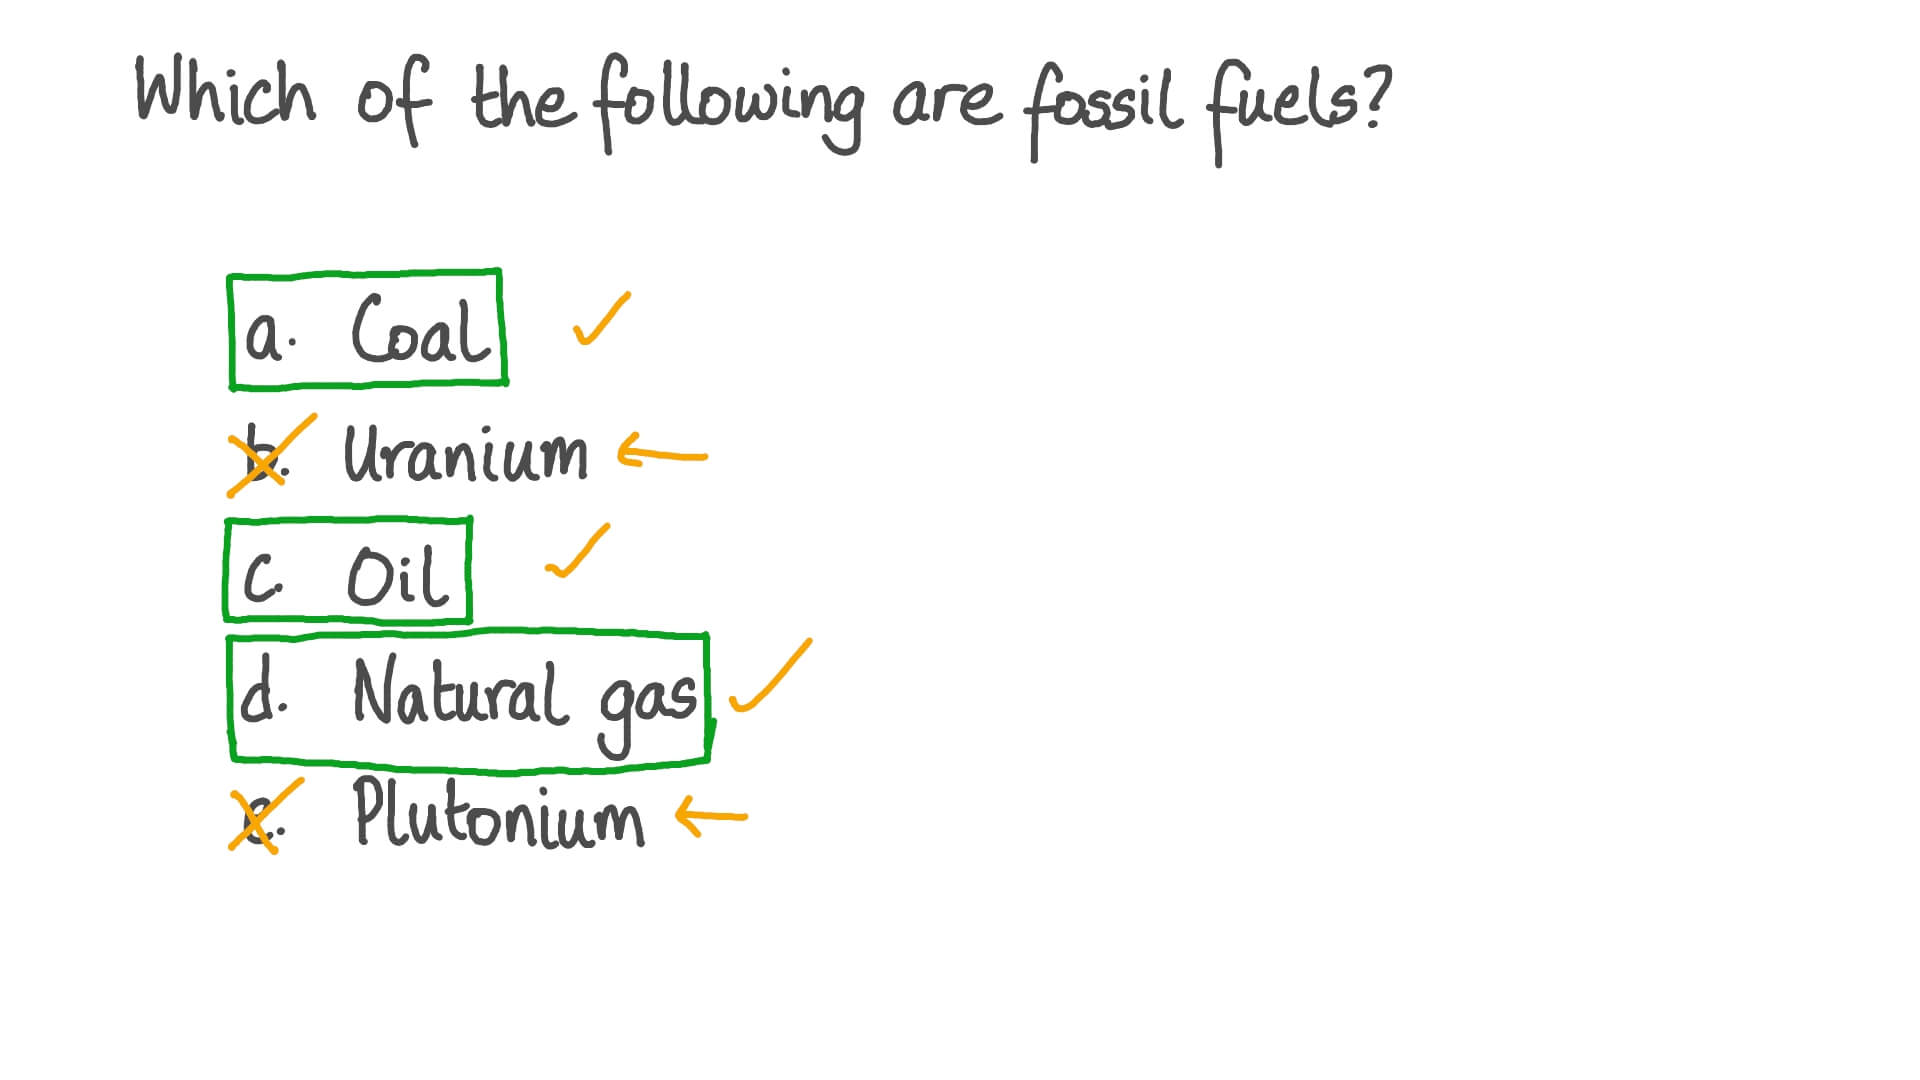 Which of the following are fossil fuels?
a. Coal
b. Uranium
c. Oil
d. Natural gas
e. Plutonium